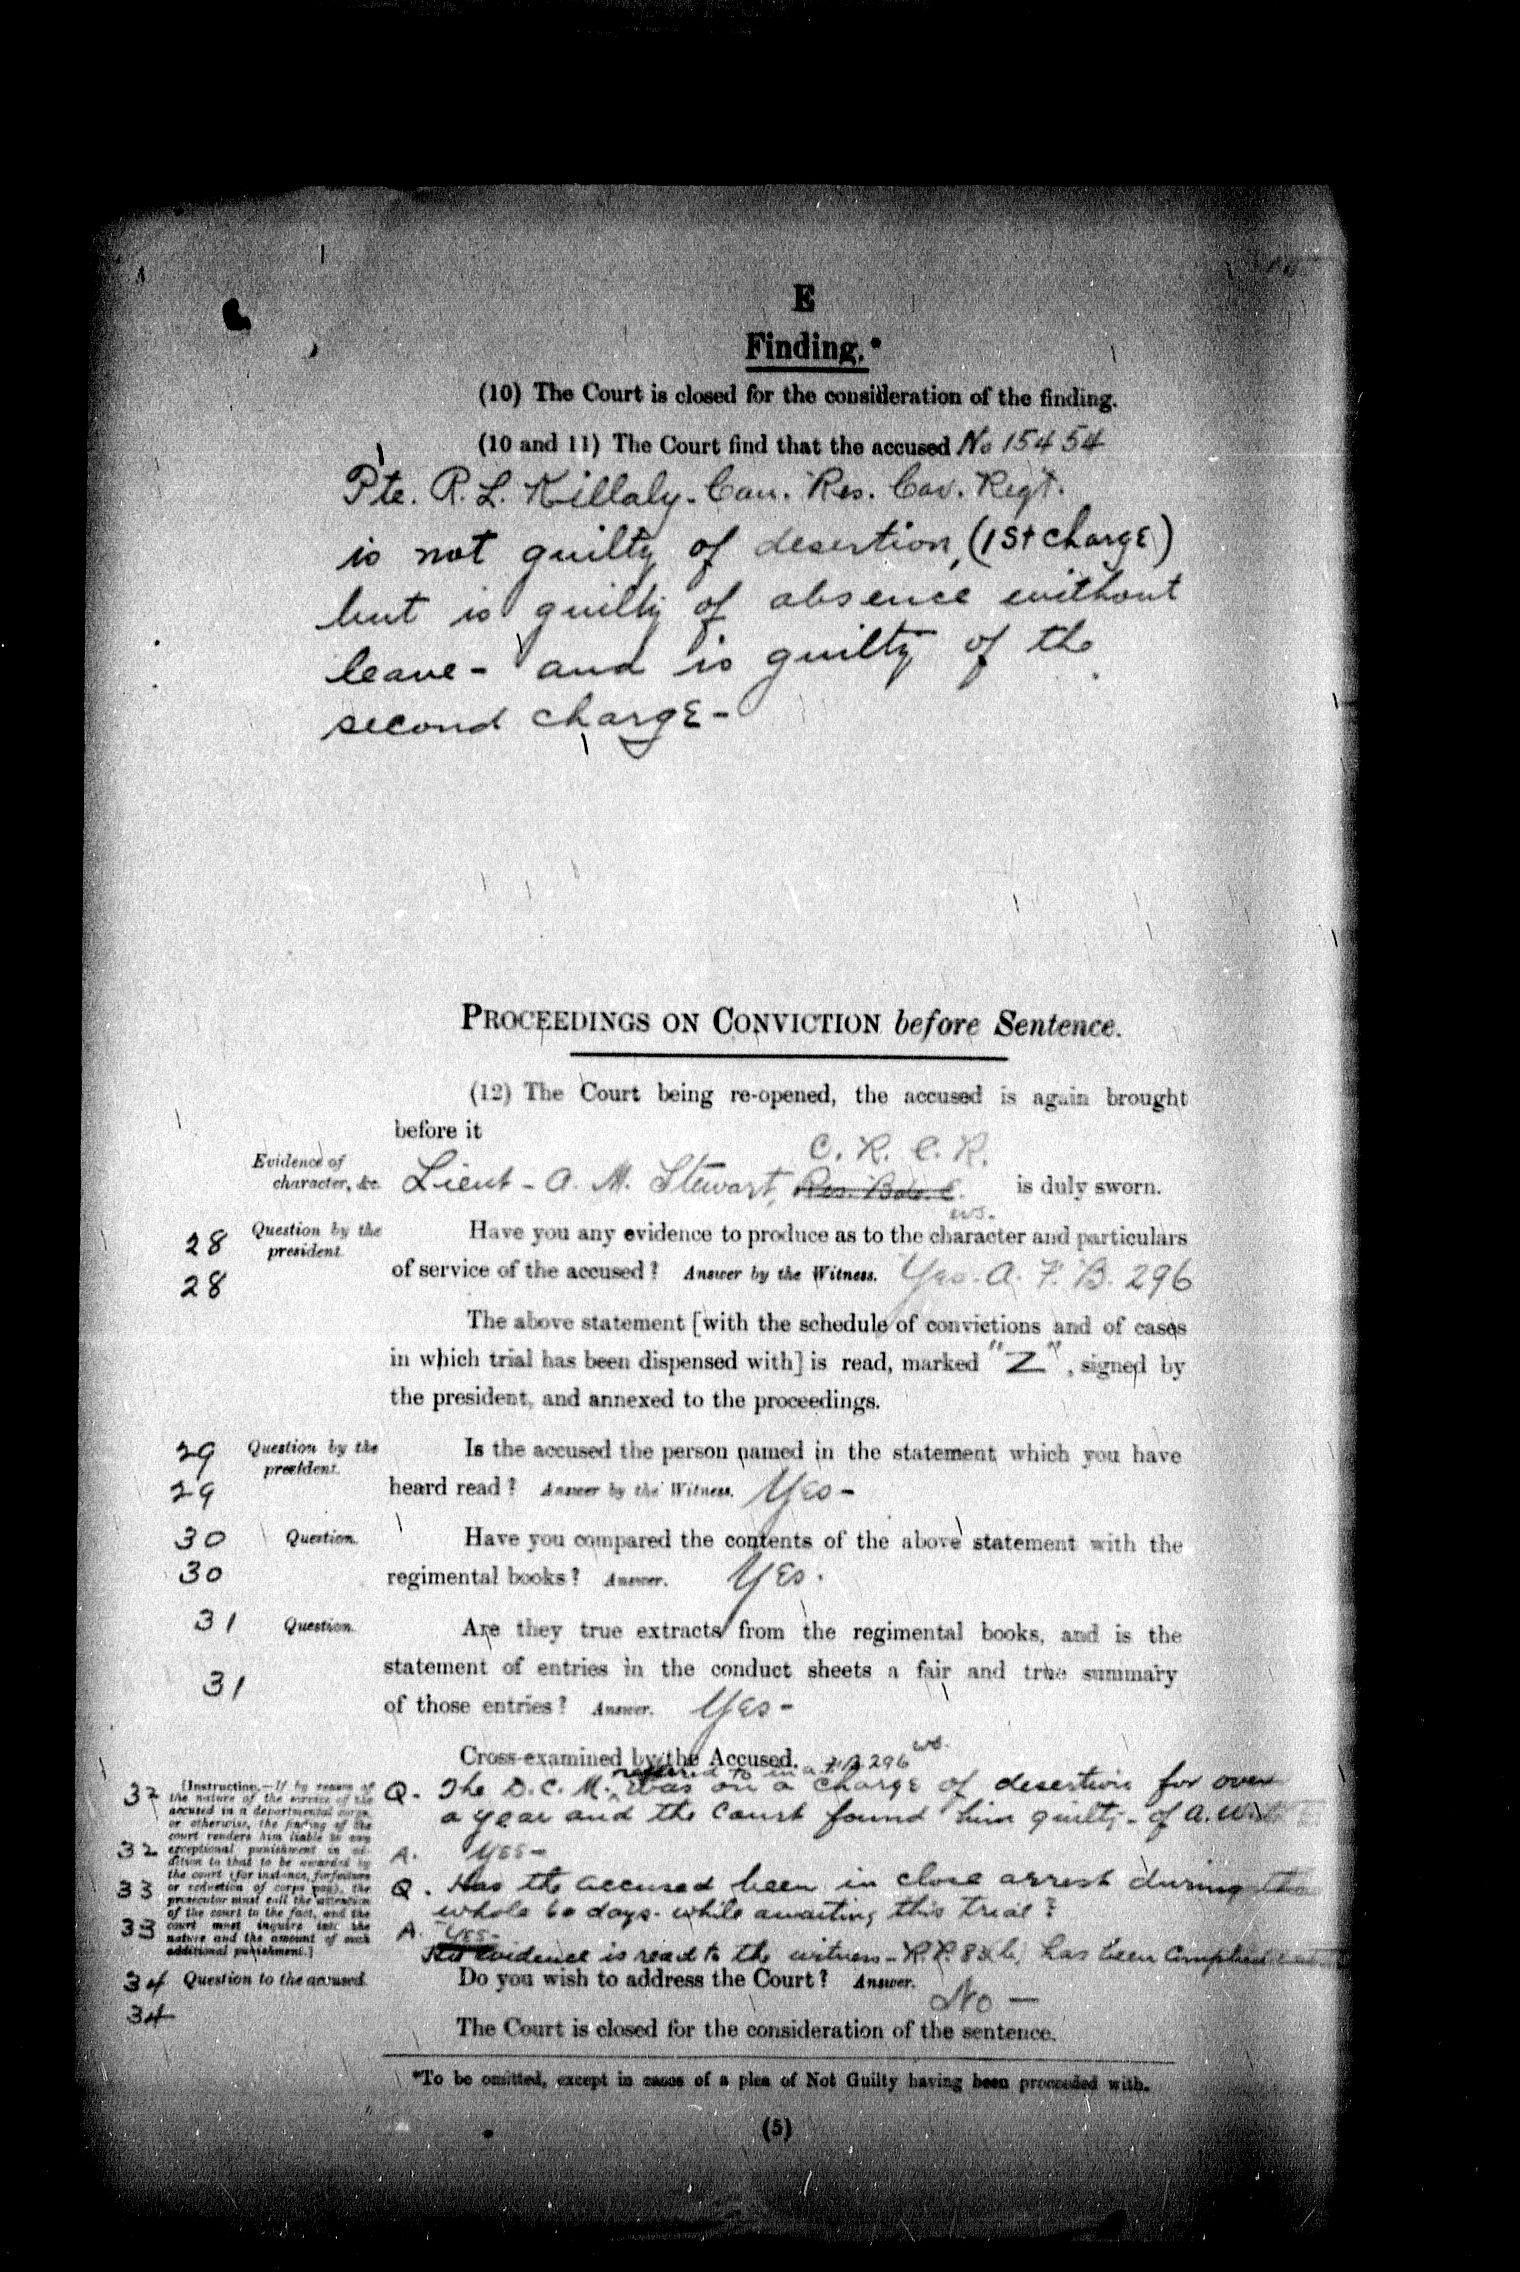 E
Finding.*
(10) The Court is closed for the consideration of the finding.
(10 and 11) The Court find that the accused No 15454
Pte. R. L. Killaly - Can. Res. Cav. Regt.
is not guilty of desertion, (1st charge)
but is guilty of absence without
leave - and is guilty of the
second charge -
PROCEEDINGS ON CONVICTION before Sentence.
(12) The Court being re-opened, the accused is again brought
before it
C. R. C. R.
Evidence of
character, &c.
Lieut - A. M. Stewart, is duly sworn.
28 Question by the
president.
Have you any evidence to produce as to the character and particulars
28 of service of the accused? Answer by the Witness. Yes. A. F. B. 296
The above statement [with the schedule of convictions and of cases
in which trial has been dispensed with] is read, marked "Z", signed by
the president, and annexed to the proceedings.
29 Question by the
president.
Is the accused the person named in the statement which you have
29 heard read? Answer by the Witness. Yes -
30 Question. Have you compared the contents of the above statement with the
30 regimental books? Answer. Yes.
31 Question. Are they true extracts from the regimental books, and is the
statement of entries in the conduct sheets a fair and true summary
31 of those entries? Answer. Yes -
Cross-examined by the Accused.
referred to in a. F.B. 296
32 Q. The D.C.M. was on a charge of desertion for over
a year and the Court found him guilty - of A.W.
32 A. Yes -
33 Q. Has the accused been in close arrest during the
whole 60 days - while awaiting this trial?
33 A. Yes -
[Instruction.—If by reason of
the nature of the service of the
accused in a departmental corps,
or otherwise, the finding of the
court renders him liable to any
exceptional punishment in ad-
dition to that to be awarded by
the court (for instance, forfeiture
or reduction of corps pay), the
prosecutor must call the attention
of the court to the fact, and the
court must inquire into the
nature and the amount of such
additional punishment.]
His evidence is read to the witness - R.P. 83 has been complied
34 Question to the accused. Do you wish to address the Court? Answer.
34 No —
The Court is closed for the consideration of the sentence.
*To be omitted, except in cases of a plea of Not Guilty having been proceeded with.
(5)